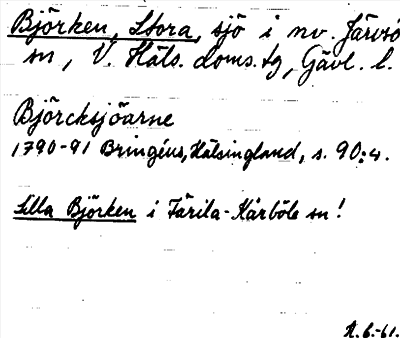 Björken, Stora, sjö i nv. Järvsö
sn, V. Häls. doms. tg, Gävl. l.
Björcksjöarne
1790-91 Bringéus, Hälsingland, s. 90:4.
Lilla Björken i Färila-Kårböle sn!
R.6.-61.